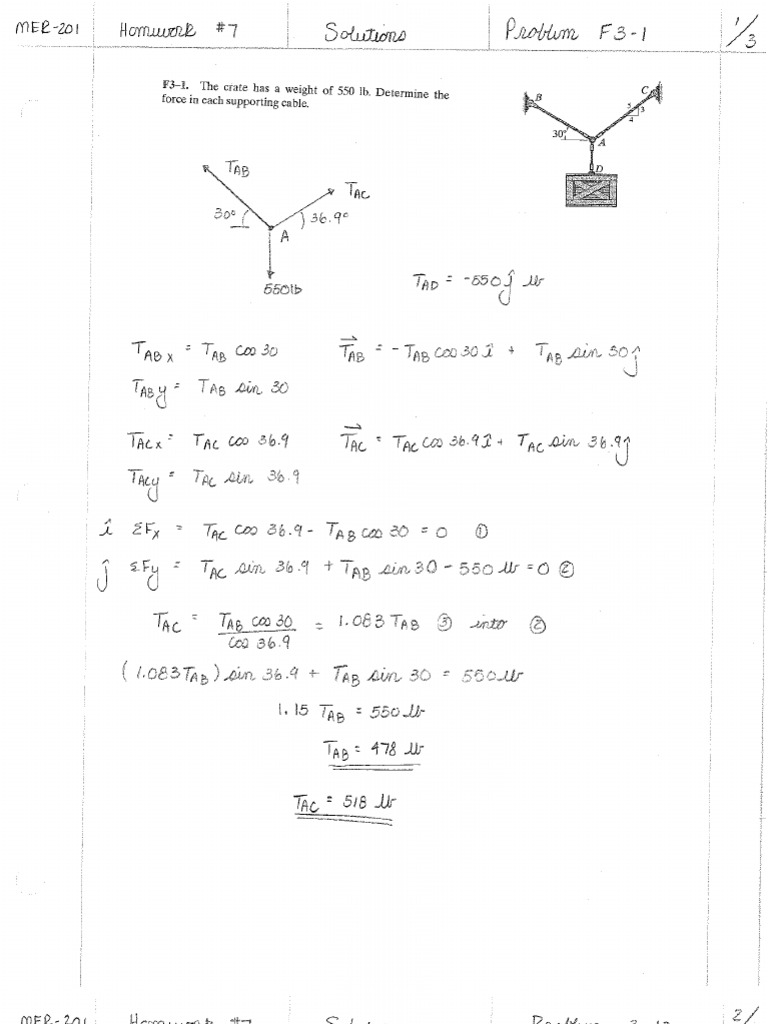 MER-201 Homework #7 Solutions Problem F3-1 1/3
F3–1. The crate has a weight of 550 lb. Determine the
force in each supporting cable.
B
C
5
3
4
30°
A
D
T_AB
T_AC
30°
36.9°
A
550lb
T_AD = -550 ĵ lb
T_ABx = T_AB cos 30
T⃗_AB = - T_AB cos 30 î + T_AB sin 30 ĵ
T_ABy = T_AB sin 30
T_ACx = T_AC cos 36.9
T⃗_AC = T_AC cos 36.9 î + T_AC sin 36.9 ĵ
T_ACy = T_AC sin 36.9
î ΣF_x = T_AC cos 36.9 - T_AB cos 30 = 0 ①
ĵ ΣF_y = T_AC sin 36.9 + T_AB sin 30 - 550 lb = 0 ②
T_AC = T_AB cos 30 / cos 36.9 = 1.083 T_AB ③ into ②
(1.083 T_AB) sin 36.9 + T_AB sin 30 = 550 lb
1.15 T_AB = 550 lb
T_AB = 478 lb
T_AC = 518 lb
MER-201 Homework #7 2/